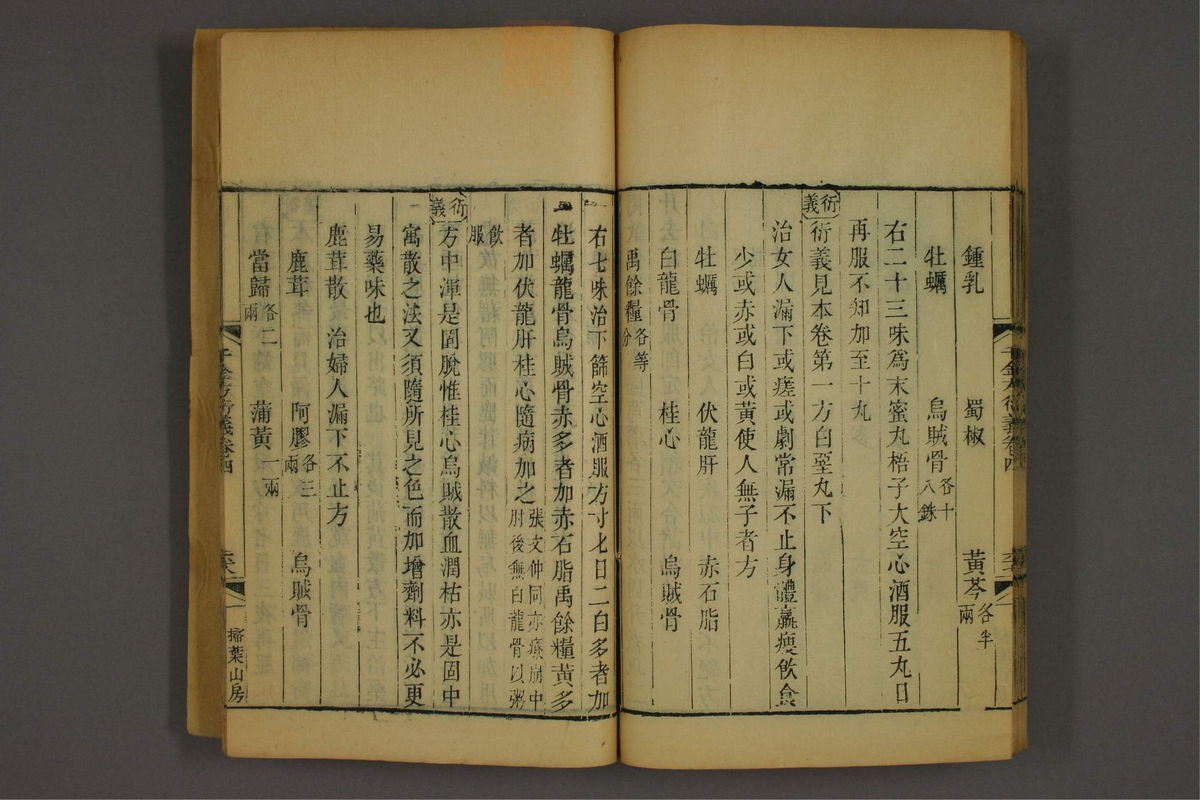 鍾乳　蜀椒　黃芩各半兩
牡蠣　烏賊骨各十八銖
右二十三味爲末蜜丸梧子大空心酒服五丸日
再服不知加至十丸
衍義
衍義見本卷第一方白堊丸下
治女人漏下或瘥或劇常漏不止身體羸瘦飲食
少或赤或白或黃使人無子者方
牡蠣　伏龍肝　赤石脂
白龍骨　桂心　烏賊骨
禹餘糧各等分
右七味治下篩空心酒服方寸匕日二白多者加
牡蠣龍骨烏賊骨赤多者加赤石脂禹餘糧黃多
者加伏龍肝桂心隨病加之張文仲同亦療崩中肘後無白龍骨以粥
飲服
衍義
方中渾是固脫惟桂心烏賊散血潤枯亦是固中
寓散之法又須隨所見之色而加增劑料不必更
易藥味也
鹿茸散　治婦人漏下不止方
鹿茸　阿膠各三兩　烏賊骨
當歸各二兩　蒲黃一兩
千金方衍義卷四
掃葉山房
千金方衍義卷四